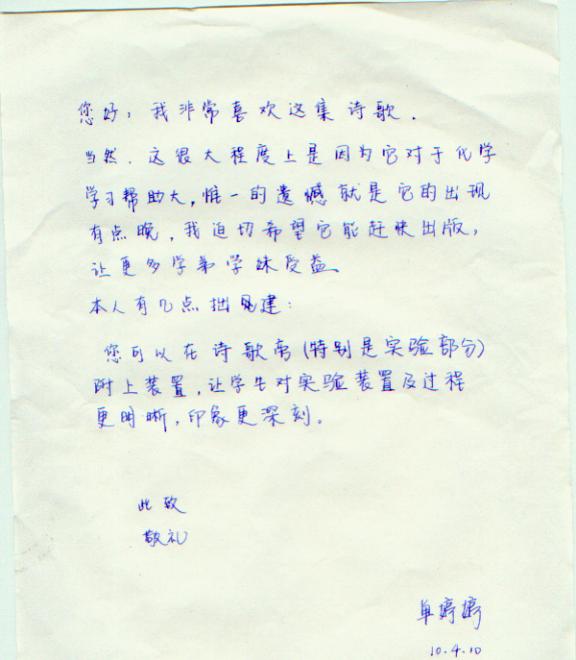 您好，我非常喜欢这集诗歌．
当然．这很大程度上是因为它对于化学
学习帮助大，惟一的遗憾就是它的出现
有点晚，我迫切希望它能赶快出版，
让更多学弟学妹受益．
本人有几点拙见建：
您可以在诗歌旁(特别是实验部分)
附上装置，让学生对实验装置及过程
更明晰，印象更深刻。
此致
敬礼
单婷婷
10.4.10